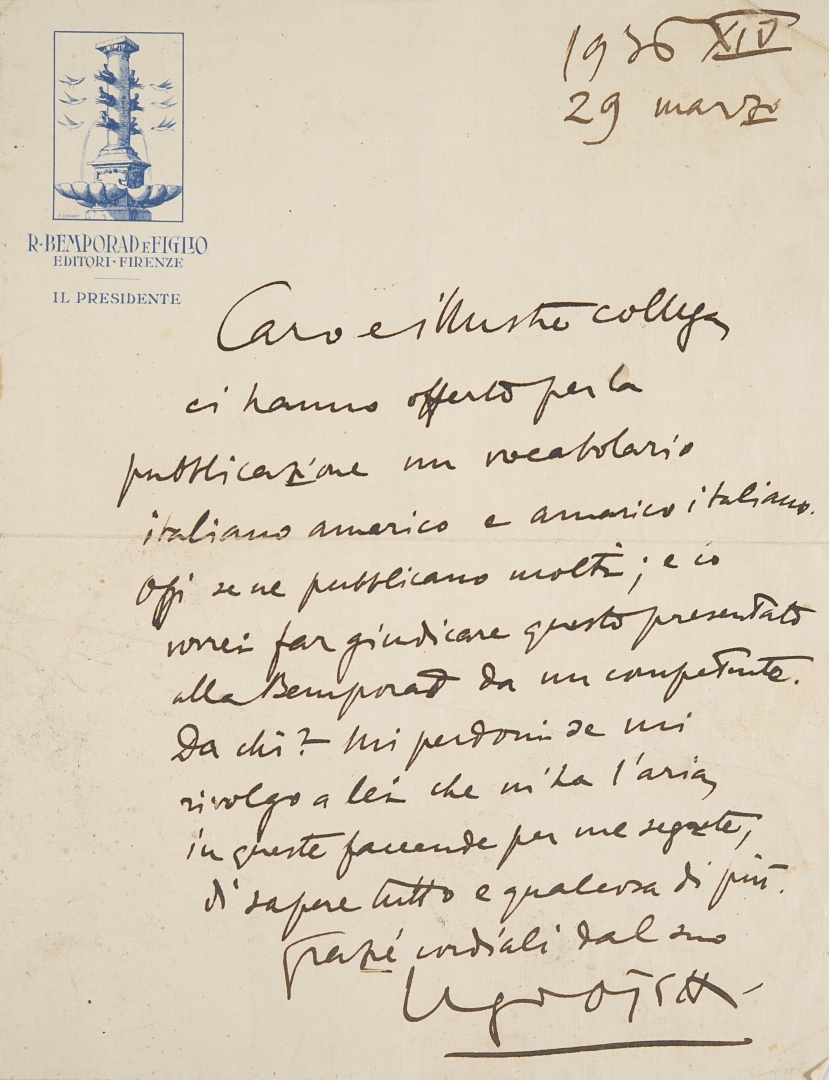 1936 XIV
29 marzo
R. BEMPORAD E FIGLIO
EDITORI · FIRENZE
IL PRESIDENTE
Caro e illustre collega,
ci hanno offerto per la
pubblicazione un vocabolario
italiano amarico e amarico italiano.
Oggi se ne pubblicano molti; e io
vorrei far giudicare questo presentato
alla Bemporad da un competente.
Da chi? Mi perdoni se mi
rivolgo a lei che m'ha l'aria,
in queste faccende per me segrete,
di sapere tutto e qualcosa di più.
Grazie cordiali dal suo
Ugo Ojetti